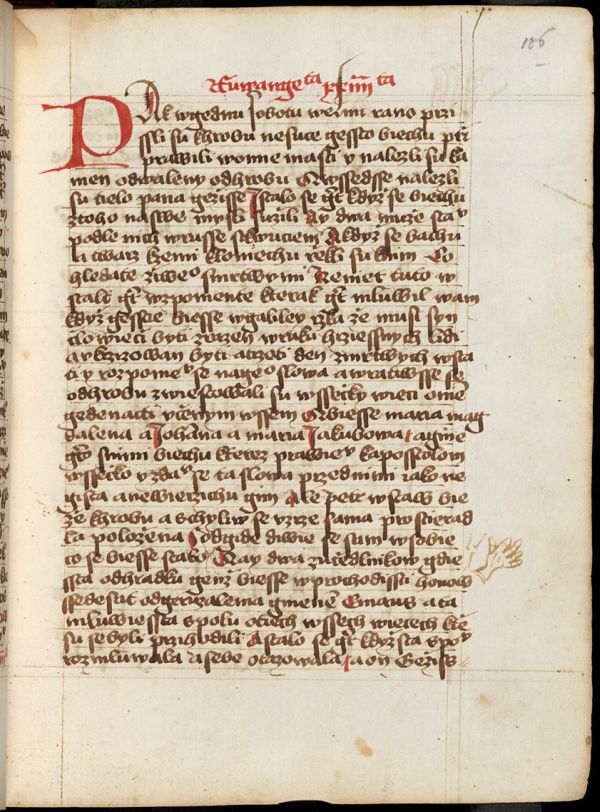 106
Pak wgednu sobotu welmi rano przi
ssli su khrobu nesuce gessto biechu
prawili wonne masti y nalezli su ka
men odwaleny odhrobu Awssedsse nalezli
su tielo pana gezisse Istalo se gt kdyz se biechu
ztoho naswe mysli Ay dwa muze sta
podle nich wrusse Akdyz se bachu
a twarz kzemi kloniechu rzekli su knim Co
hledate ziweo smrtwymi Neniet tuto w
stalt gt wzpomente kterak gt mluwil wam
kdyz gesscie biesse wgalilei rzka ze musi syn
clowieci byti zrazen wruku hrziessnych lidi
a vkrzizowan byti atrzeti den zmrtwych wsta
ti y rozpome se nageo slowa a wratiwsse se
odhrobu zwiestowali su wssecky wieci
gedenacti vcenym wssem Abiesse maria mag
dalena a Johanna a maria Jakubowa a gine
snimi biechu kterez prawie kaposstolom
wssecko y zda se ta slowa przednimi iako ne
gista a newierzichu gim Ale petr wstaw bie
ze khrobu a schyliw se vzrze sama prostierad
la polozena odgide diwie se sam wsobie
co se biesse stalo Aay dwa zucedlnikow gdie
ssta odhradku genz biesse wprochodissi honow
ssedesat odgeruzalema gmenem Emaus a ta
mluwiessta spolu otiech wssech wiecech kte
su se byli przihodili Astalo se gt kdyz sta spo
rozmluwala asebe otazowala a on Gezis